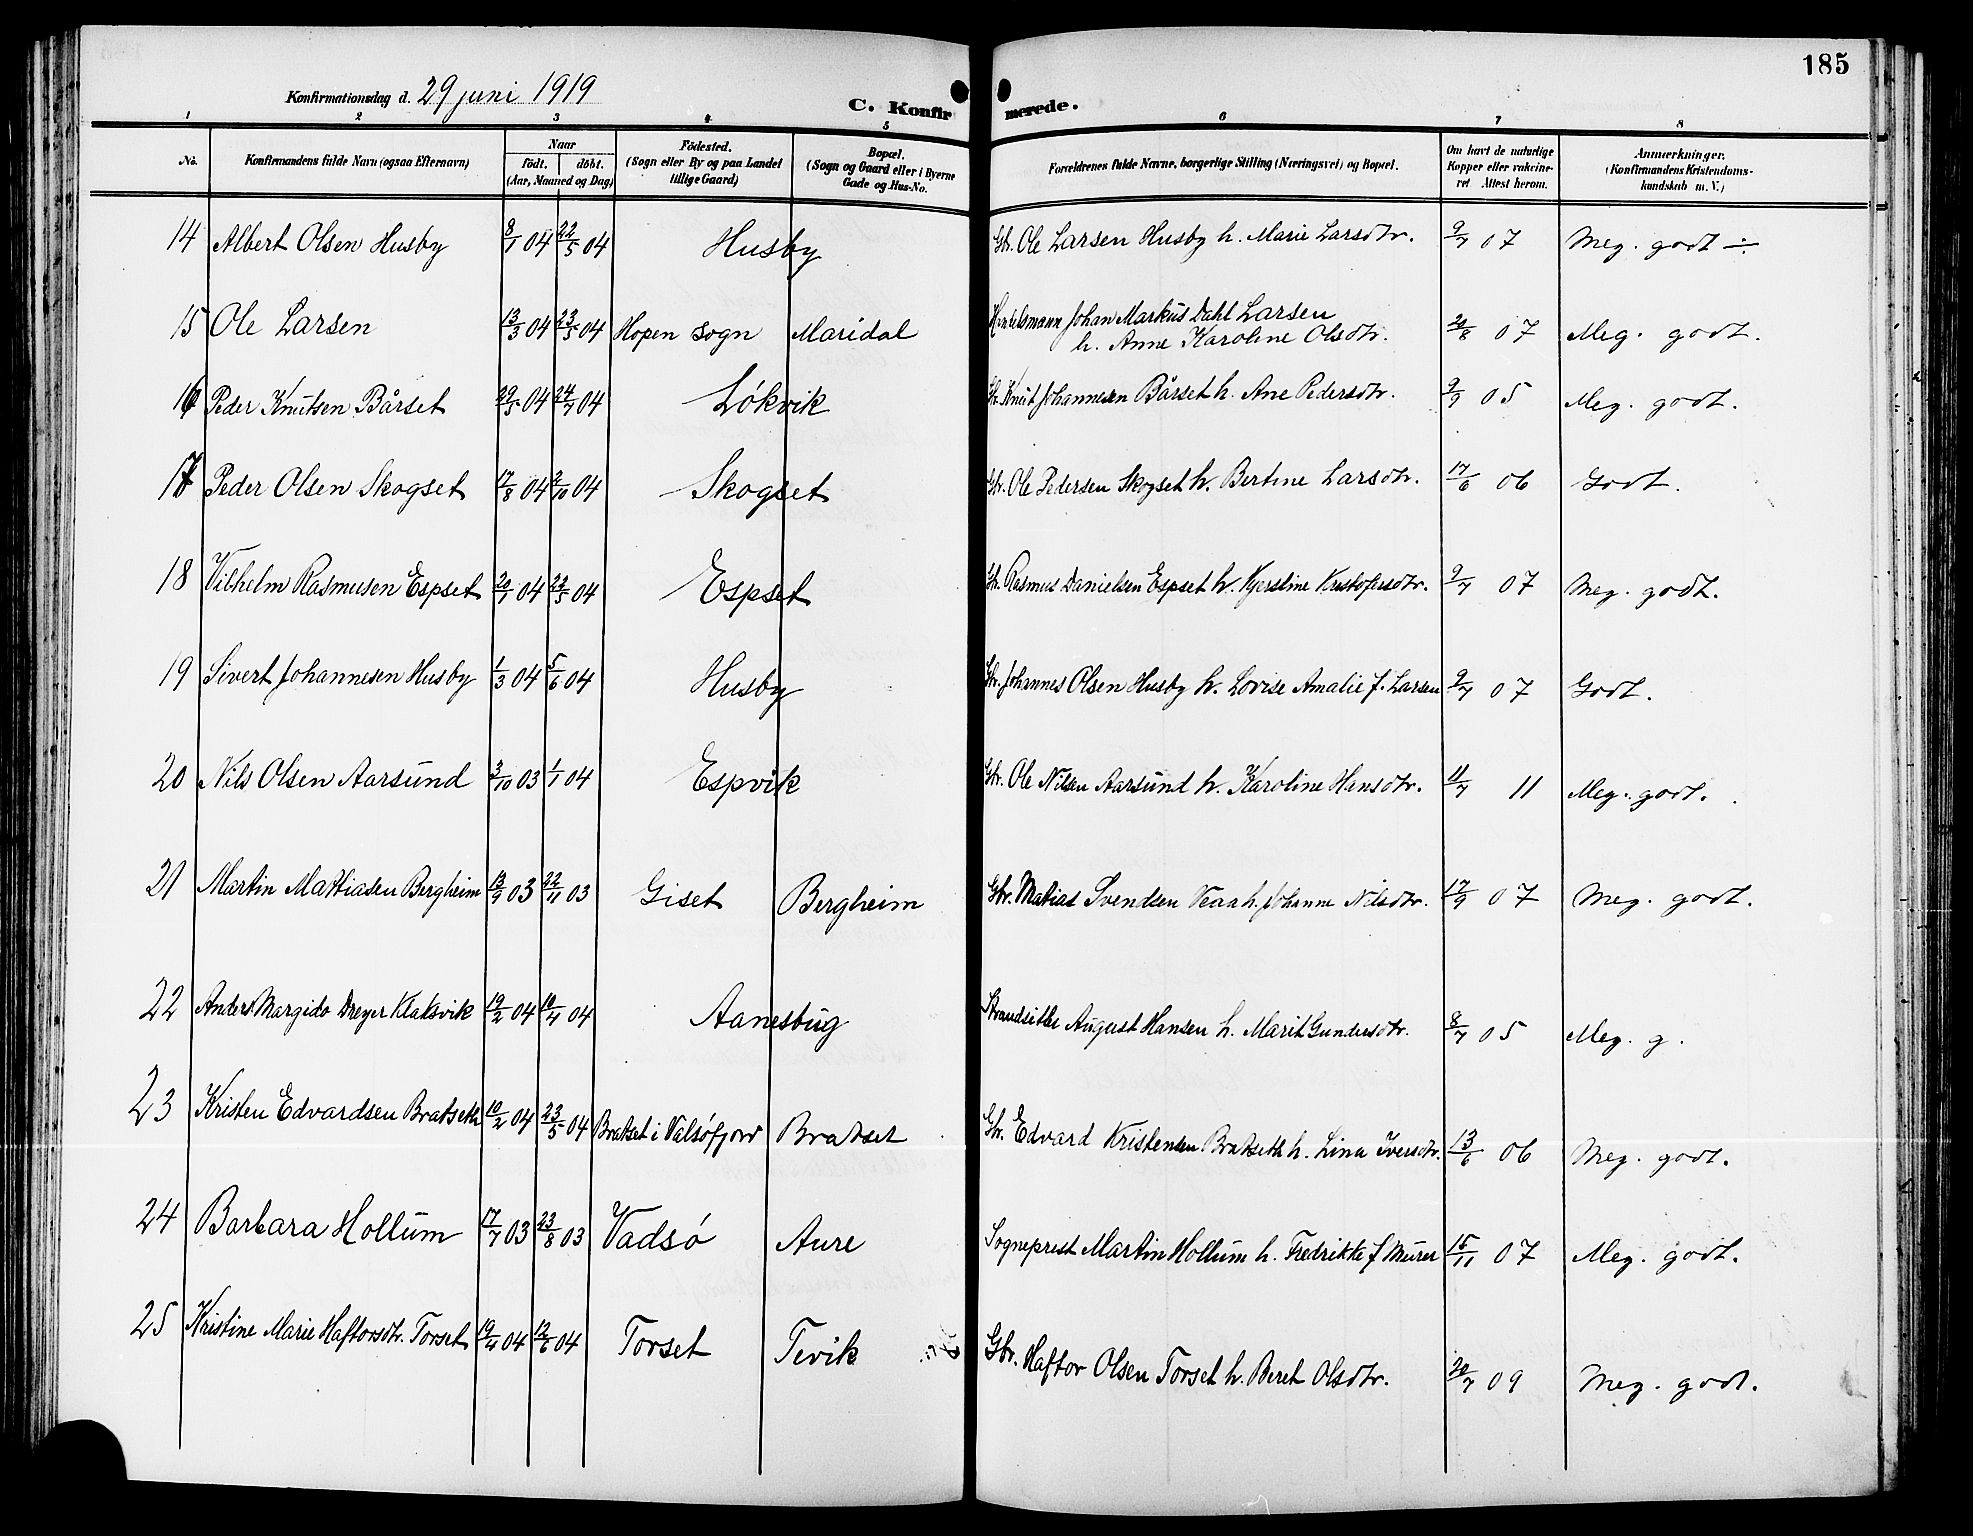 185
Konfirmationsdag d. 29 juni 1919
C. Konfirmerede.
1 2 3 4 5 6 7 8
No. Konfirmandens fulde Navn (ogsaa Efternavn) Naar født. døbt. (Aar, Maaned og Dag) Fødested. (Sogn eller By og paa Landet tillige Gaard) Bopæl. (Sogn og Gaard eller i Byerne Gade og Hus-No. Forældrenes fulde Navne, borgerlige Stilling (Næringsvei) og Bopæl. Om havt de naturlige Kopper eller vakcineret Attest herom. Anmærkninger. (Konfirmandens Kristendomskundskab m. V.)
14 Albert Olsen Husby 8/1 04 22/5 04 Husby Gbr. Ole Larsen Husby h. Marie Larsdtr. 9/7 07 Meg. godt ÷
15 Ole Larsen 13/3 04 23/5 04 Hopen sogn Maridal Johan Markus Dahl Larsen
h. Anne Karoline Olsdtr. 20/8 07 Meg. godt.
16 Peder Knutsen Bårset 29/5 04 24/7 04 Løkvik Gbr. Knut Johannesen Bårset h. Ane Pedersdtr. 9/9 05 Meg. godt.
17 Peder Olsen Skogset 17/8 04 2/10 04 Skogset Gbr. Ole Pedersen Skogset h. Bertine Larsdtr. 17/6 06 Godt.
18 Vilhelm Rasmusen Espset 20/1 04 22/5 04 Espset Gbr. Rasmus Danielsen Espset h. Kjerstine Kristofersdtr. 9/7 07 Meg. godt.
19 Sivert Johannesen Husby 1/3 04 5/6 04 Husby Gbr. Johannes Olsen Husby h. Lovise Amalie f. Larsen 9/7 07 Godt.
20 Nils Olsen Aarsund 3/10 03 1/1 04 Espvik Gbr. Ole Nilsen Aarsund h. Karoline Hansdtr. 11/7 11 Meg. godt.
21 Martin Mattiasen Bergheim 13/9 03 22/11 03 Giset Bergheim Gbr. Matias Svendsen h. Johanne Nilsdtr. 17/9 07 Meg. godt.
22 Anders Margido Dreyer Klaksvik 19/2 04 10/4 04 Aanesbug Strandsitter August Hansen h. Marit Gundersdtr. 8/7 05 Meg. g.
23 Kristen Edvardsen Bratseth 10/2 04 23/5 04 Bratset i Valsøfjord Bratset Gbr. Edvard Kristensen Bratseth h. Lina Iversdtr. 13/6 06 Meg. godt.
24 Barbara Hollum 17/7 03 23/8 03 Vadsø Aure Sogneprest Martin Hollum h. Fredrikke f Murer 15/11 07 Meg. godt.
25 Kristine Marie Haftorsdtr. Torset 19/4 04 12/6 04 Torset Tevik Gbr. Haftor Olsen Torset h. Beret Olsdtr. 20/7 09 Meg. godt.